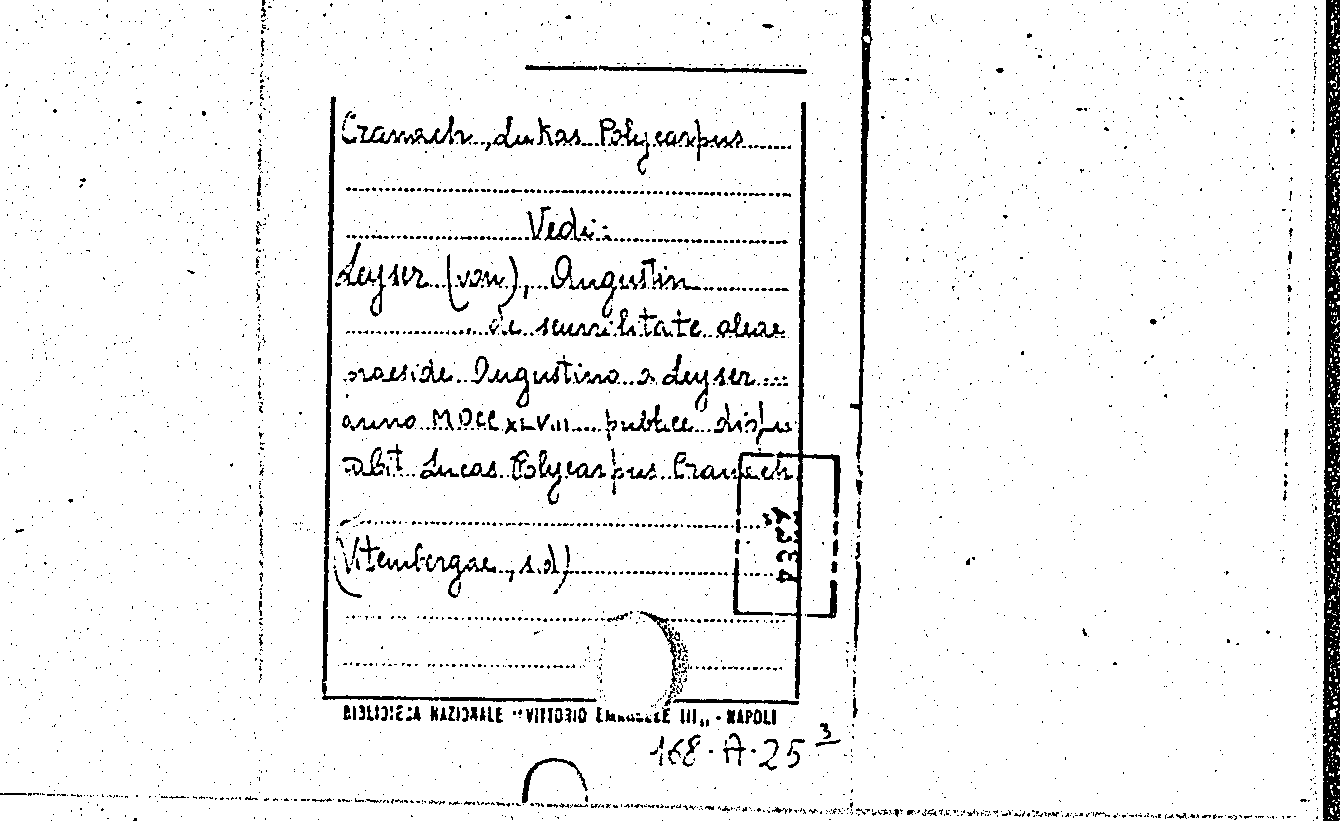 Cranach, Lukas Polycarpus
Vedi:
Leyser (von), Augustin
... de scurrilitate aleae
praeside Augustino a Leyser ...
anno MDCCXLVIII ... publice dispu
tabit Lucas Polycarpus Cranach
(Vitembergae, s.d)
BIBLIOTECA NAZIONALE "VITTORIO EMANUELE III„ - NAPOLI
168·A·25 3